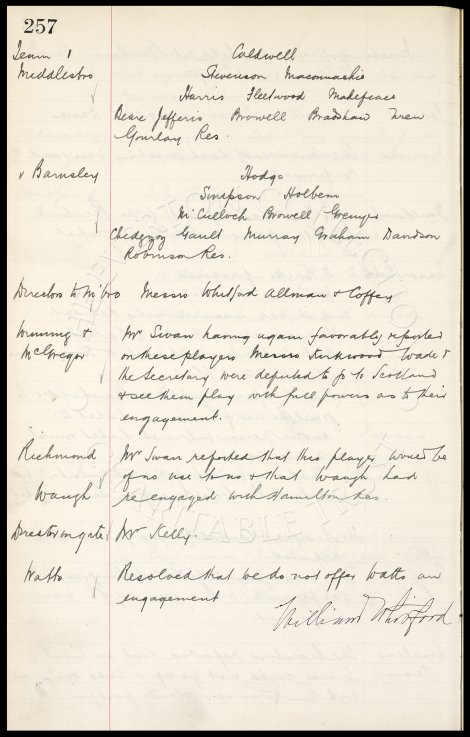 257
Team v
Middlesbro
Caldwell
Stevenson Maconnachie
Harris Fleetwood Makepeace
Beare Jefferis Browell Bradshaw Uren
Gourlay Res.
v Barnsley
Hodge
Simpson Holbem
McCulloch Browell Grenyer
Chedgzoy Gault Murray Graham Davidson
Robinson Res.
Directors to M'bro Messrs Whitford Allman & Coffey
&
McGregor
Mr Swan having again favorably reported
on these players Messrs Kirkwood Wade &
the Secretary were deputed to go to Scotland
& see them play with full powers as to their
engagement.
Richmond
Waugh
Mr Swan reported that this player would be
of no use to us & that Waugh had
re engaged with Hamilton
Director on gate
Mr Kelly.
Watts
Resolved that we do not offer Watts an
engagement
William Whitford